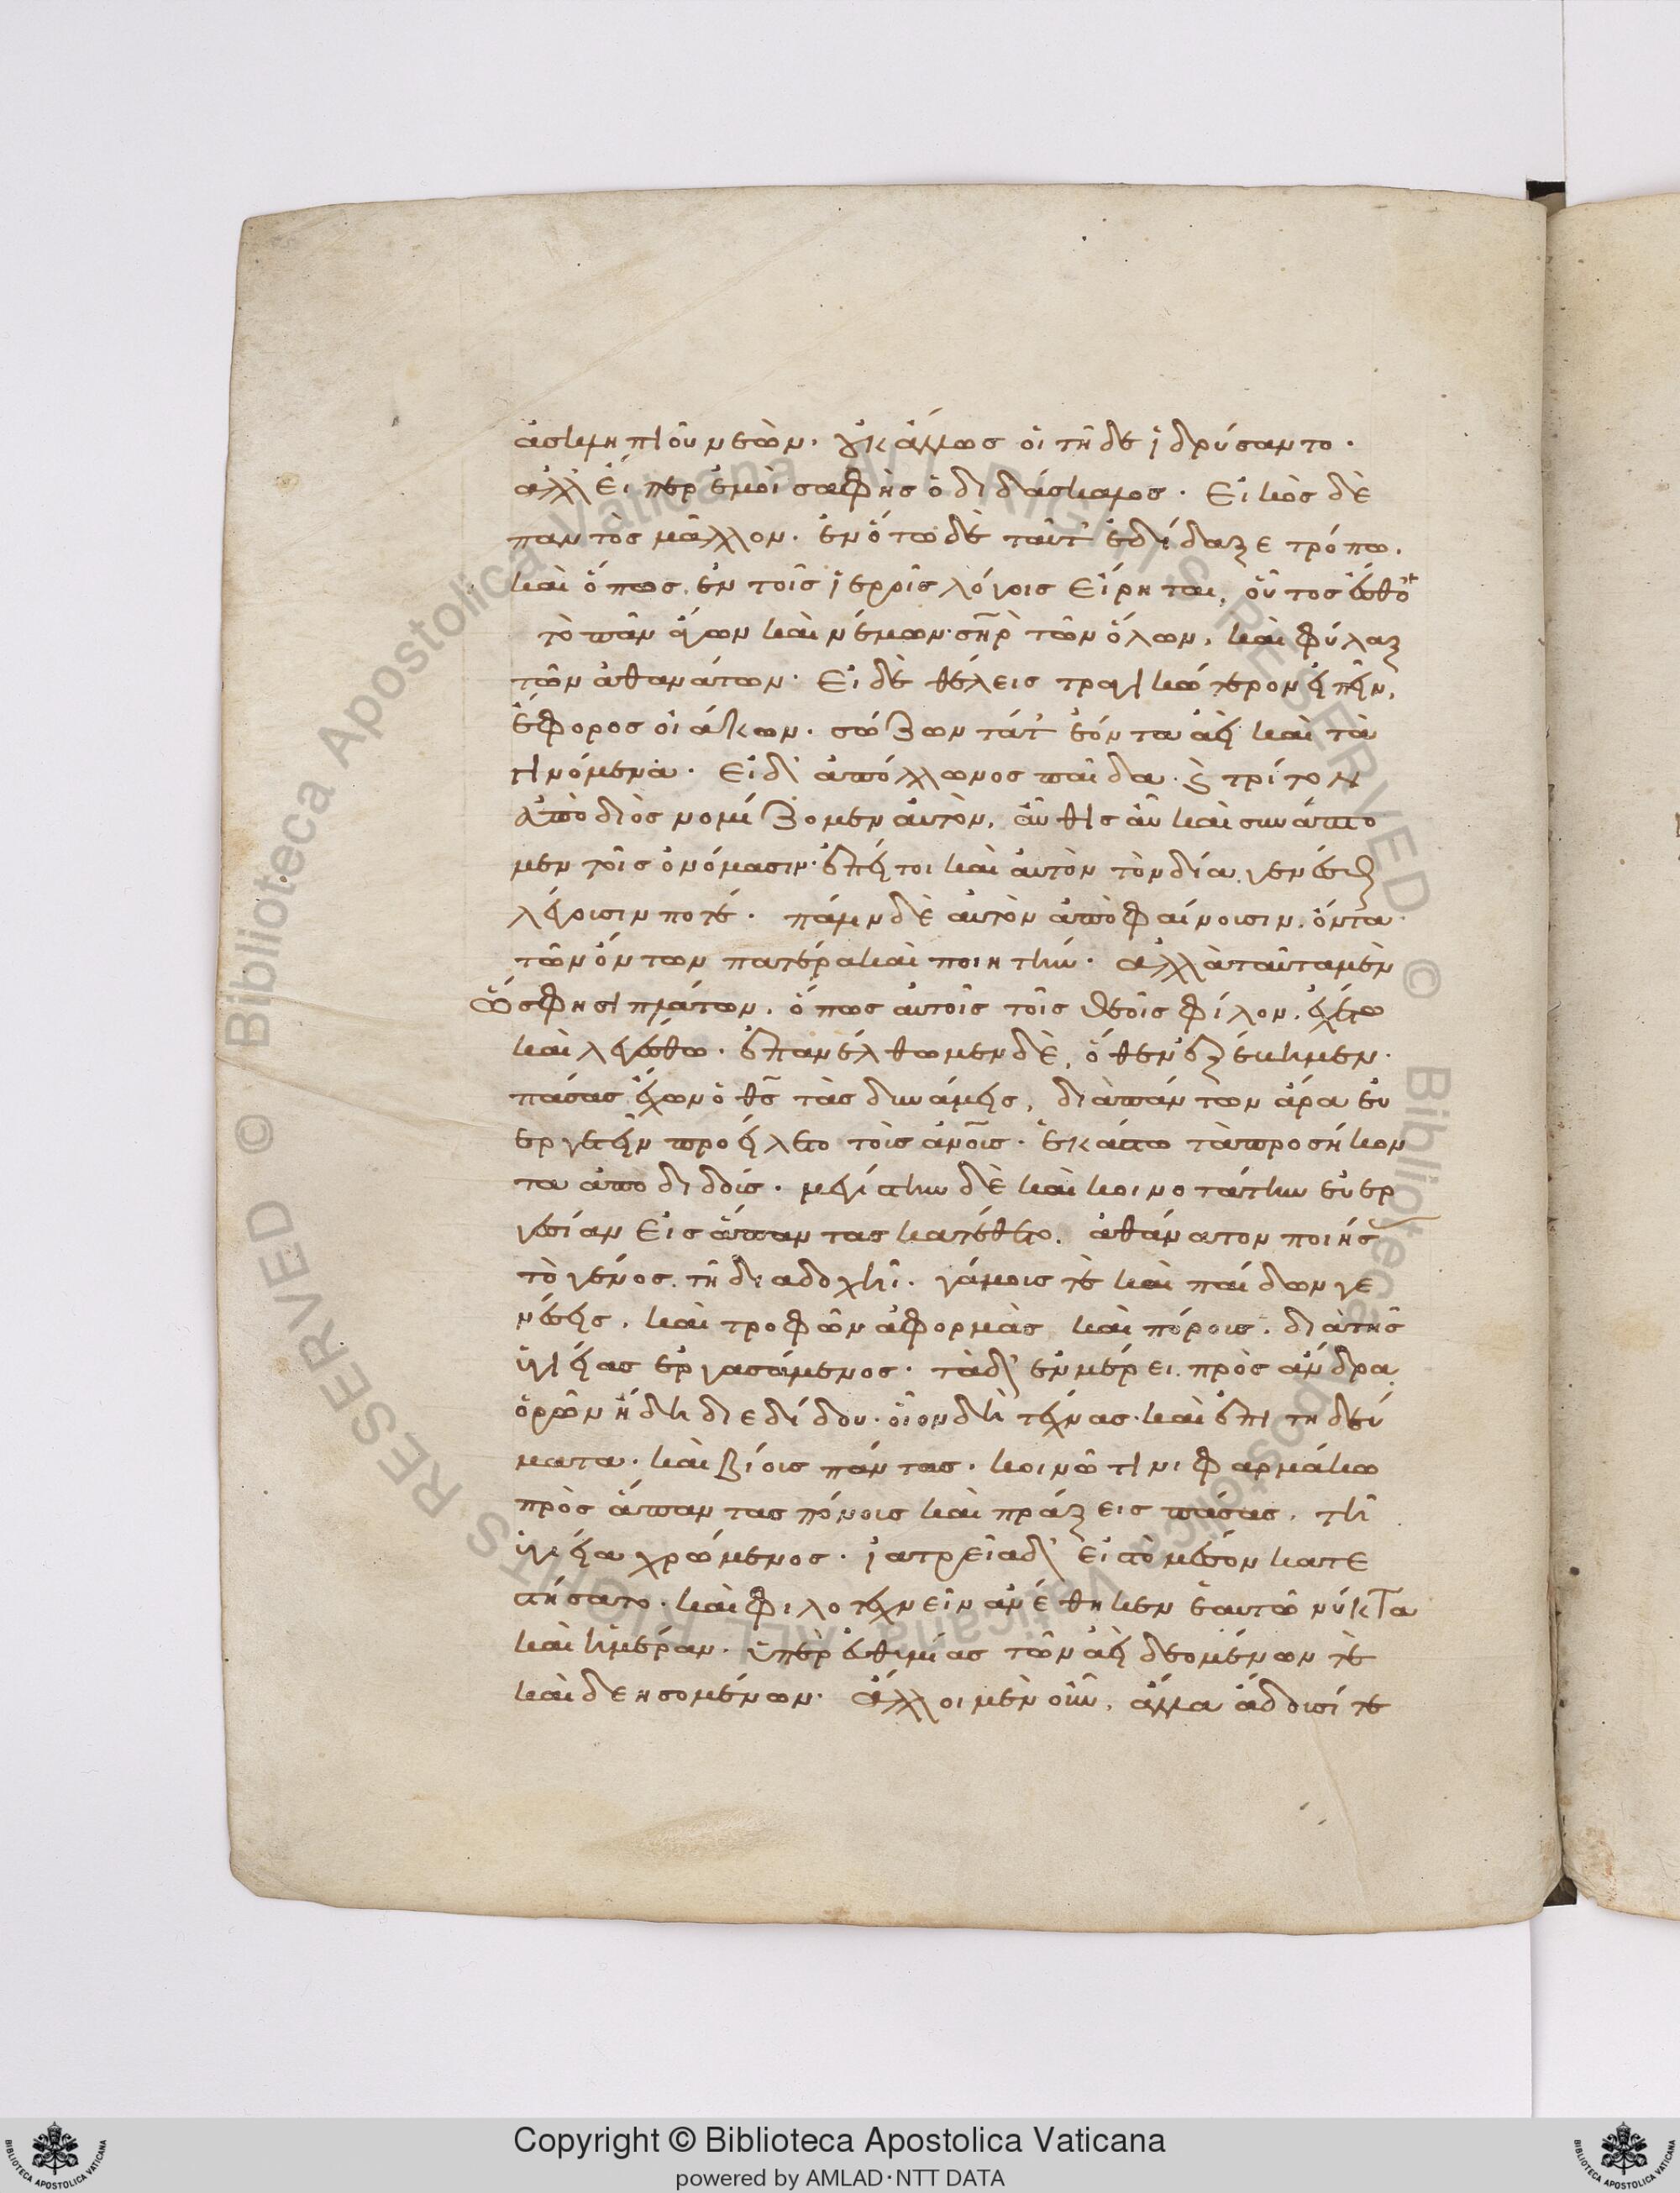 ἀσκληπιοῦ νεών. οὐκ ἄλλως οἱ τῆδε ἱδρύσαντο.
ἀλλ' εἴπερ ἐμοὶ σαφὴς ὁ διδάσκαλος. εἰκὸς δὲ
παντὸς μᾶλλον. ἐν ὅτω δὲ ταῦτ' ἐδίδαξε τρόπω.
καὶ ὅπως ἐν τοῖς ἱεροῖς λόγοις εἴρηται, οὗτος ἐσθ' ὁ
τὸ πᾶν ἄγων καὶ νέμων σηρ τῶν ὅλων, καὶ φύλαξ
τῶν ἀθανάτων. εἰ δὲ θέλεις τραγικώτερον εἰπεῖν,
ἔφορος οἰάκων. σώζων τά τ' ἐόντα ἀεὶ καὶ τὰ
γινόμενα. εἰ δ' ἀπόλλωνος παῖδα. καὶ τρίτον
ἀπὸ διὸς νομίζομεν αὐτὸν, αὖθις αὖ καὶ συνάπτο
μεν τοῖς ὀνόμασιν. ἐπεί τοι καὶ αὐτὸν τὸν δία γενέσθαι
λέγουσίν ποτέ. πάλιν δὲ αὐτὸν ἀποφαίνουσιν, ὄντα
τῶν ὄντων πατέρα καὶ ποιητήν. ἀλλὰ ταῦτα μὲν
ὥς φησι πλάτων, ὅπως αὐτοῖς τοῖς θεοῖς φίλον, ἐχέτω
καὶ λεγέσθω. ἐπανέλθωμεν δὲ, ὅθεν ἐξέβημεν.
πάσας ἔχων ὁ θς τὰς δυνάμεις, διὰ πάντων ἄρα εὐ
εργετεῖν προείλετο τοὺς ἀνους. ἑκάστω τὰ προσήκον
τα ἀποδιδούς. μεγίστην δὲ καὶ κοινοτάτην εὐερ
γεσίαν εἰς ἅπαντας κατέθετο, ἀθάνατον ποιήσας
τὸ γένος τῆ διαδοχῆ. γάμους τε καὶ παίδων γε
νέσεις, καὶ τροφῶν ἀφορμὰς καὶ πόρους, διὰ τῆς
ὑγιείας ἐργασάμενος. τὰ δ' ἐν μέρει πρὸς ἄνδρα
ὁρῶν ἤδη διεδίδου. οἷον δὴ τέχνας καὶ ἐπιτηδεύ
ματα. καὶ βίους πάντας. κοινῶ τινι φαρμάκω
πρὸς ἅπαντας πόνους καὶ πράξεις πάσας, τῆ
ὑγιεία χρώμενος. ἰατρεῖα δ' εἰς τὸ μέσον κατε
στήσατο. καὶ φιλοτεχνεῖν ἀνέθηκεν ἑαυτῶ νύκτα
καὶ ἡμέραν. ὑπὲρ εὐθυμίας τῶν ἀεὶ δεομένων τε
καὶ δεησομένων. ἄλλοι μὲν οὖν, ἄλλα ἄδουσί τε
Copyright © Biblioteca Apostolica Vaticana
powered by AMLAD·NTT DATA